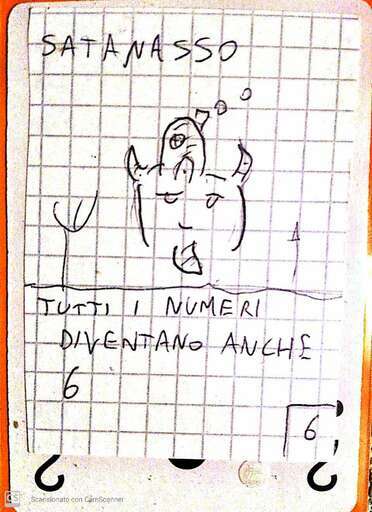 SATANASSO
TUTTI I NUMERI
DIVENTANO ANCHE
6
6
CS Scansionato con CamScanner